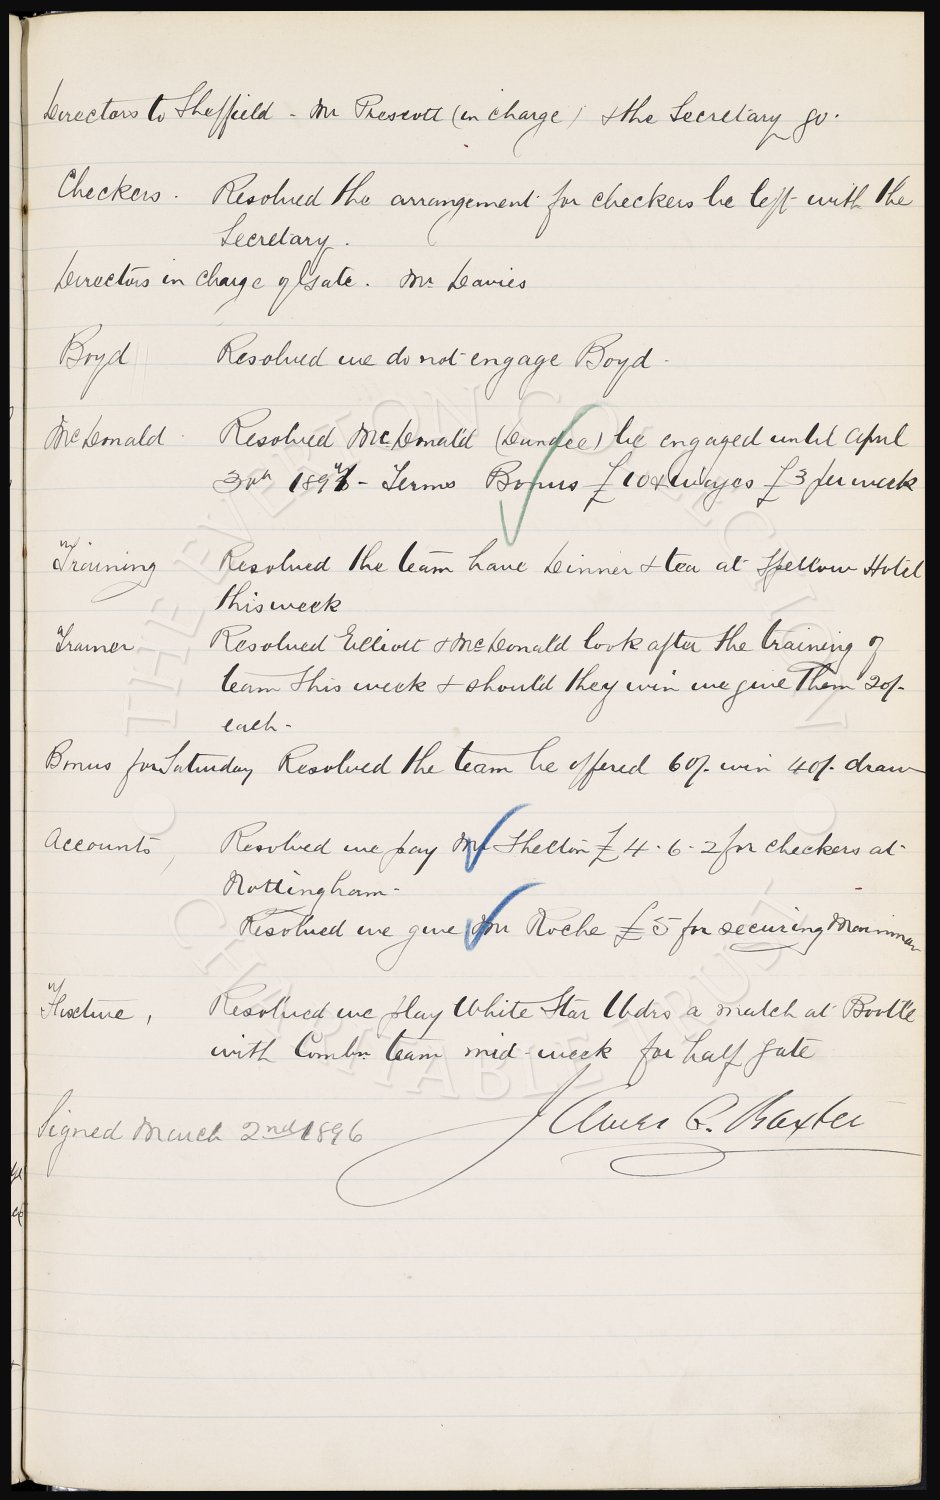 Directors to Sheffield - Mr Prescott (in charge) & the Secretary go.
Checkers. Resolved the arrangement for checkers be left with the
Secretary.
Directors in charge of Gate. Mr Davies
Boyd Resolved we do not engage Boyd.
McDonald Resolved McDonald (Dundee) be engaged until April
30th 1897 - Terms Bonus £10 & wages £3 per week
Training Resolved the team have Dinner & tea at Spellow Hotel
this week
Trainer Resolved Elliott & McDonald look after the training of
team this week & should they win we give them 20/-
each.
Bonus for Saturday Resolved the team be offered 60/- win 40/- draw
Accounts, Resolved we pay Mr Shelton £4.6.2 for checkers at
Nottingham.
Resolved we give Mr Roche £5 for securing
Fixture, Resolved we play White Star Wdrs a match at Bootle
with Combn team mid-week for half gate
Signed March 2nd 1896 James C. Baxter
THE EVERTON COLLECTION
CHARITABLE TRUST